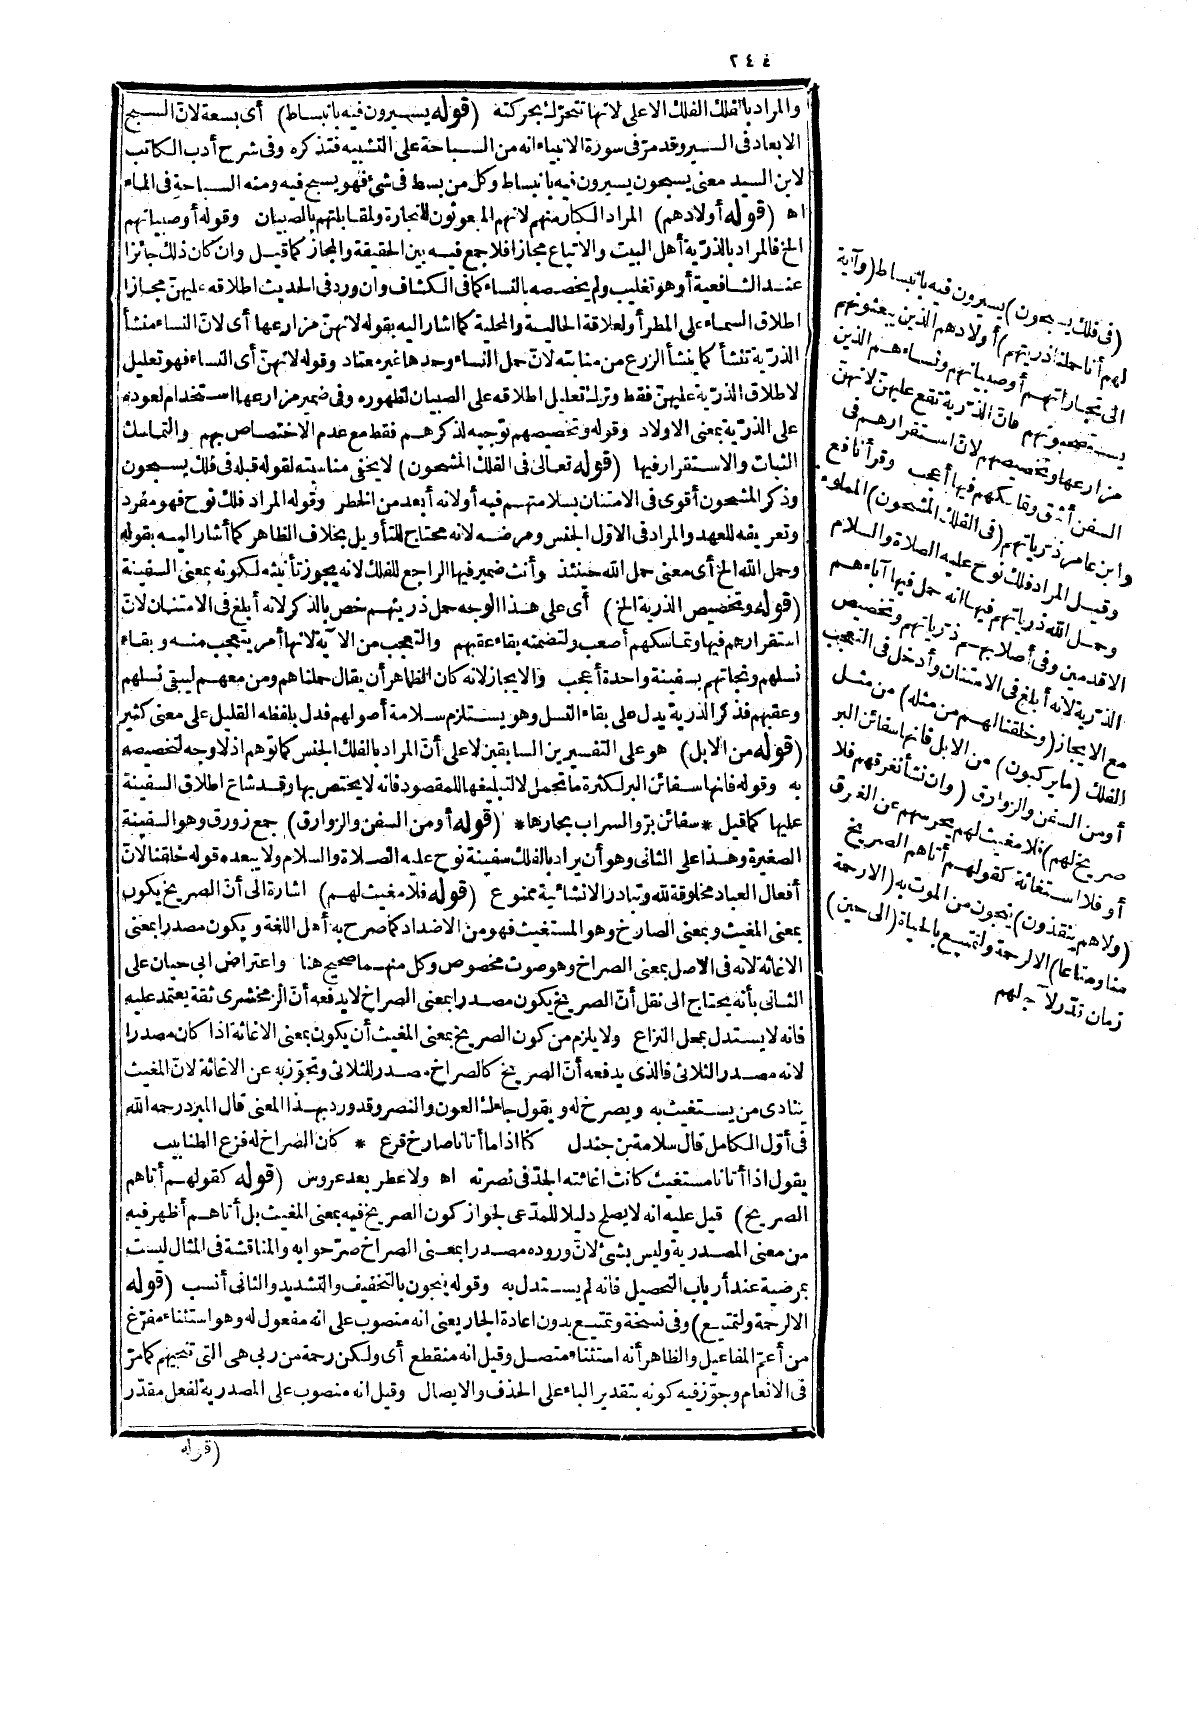 ٢٤٤
والمراد بالفلك الفلك الاعلى لانها تتحرّك بحركته (قوله يسيرون فيه بانبساط) أى بسعة لانّ السبح
الابعاد فى السير وقد مرّ فى سورة الانبياء انه من السباحة على التشبيه فتذكره وفى شرح أدب الكاتب
لابن السيد معنى يسبحون يسيرون فيه بانبساط وكل من بسط فى شئ فهو يسبح فيه ومنه السباحة فى الماء
اه (قوله أولادهم) المراد الكبار منهم لانهم المبعوثون للتجارة ولمقابلتهم بالصبيان وقوله أوصبيانهم
الخ فالمراد بالذرّية أهل البيت والاتباع مجازا فلا جمع فيه بين الحقيقة والمجاز كما قيل وان كان ذلك جائزا
عند الشافعية أوهو تغليب ولم يخصصه بالنساء كما فى الكشاف وان ورد فى الحديث اطلاقه عليهنّ مجازا
اطلاق السماء على المطر أولعلاقة الحالية والمحلية كما اشار اليه بقوله لانهنّ مزارعها أى لانّ النساء منشأ
الذرّية تنشأ كما ينشأ الزرع من منابته لانّ حمل النساء وحدها غير معتاد وقوله لانهنّ أى النساء فهو تعليل
لاطلاق الذرّية عليهنّ فقط وترك تعليل اطلاقه على الصبيان لظهوره وفى ضمير مزارعها استخدام لعوده
على الذرّية بمعنى الاولاد وقوله وتخصيصهم توجيه لذكرهم فقط مع عدم الاختصاص بهم والتماسك
الثبات والاستقرار فيها (قوله تعالى فى الفلك المشحون) لا يخفى مناسبته لقوله قبله فى فلك يسبحون
وذكر المشحون أقوى فى الامتنان بسلامتهم فيه أولانه أبعد من الخطر وقوله المراد فلك نوح فهو مفرد
وتعريفه للعهد والمراد فى الاول الجنس ومرضه لانه محتاج للتأويل بخلاف الظاهر كما أشار اليه بقوله
وحمل الله الخ أى معنى حمل الله حينئذ وأنث ضمير فيها الراجع للفلك لانه يجوز تأنيثه لكونه بمعنى السفينة
(قوله وتخصيص الذرية الخ) أى على هذا الوجه حمل ذريتهم خص بالذكر لانه أبلغ فى الامتنان لانّ
استقرارهم فيها وتماسكهم أصعب ولتضمنه بقاء عقبهم والتعجب من الآية لانها أمر يتعجب منه وبقاء
نسلهم ونجاتهم بسفينة واحدة أعجب والايجاز لانه كان الظاهر أن يقال حملناهم ومن معهم ليبقى نسلهم
وعقبهم فذكر الذرية يدل على بقاء النسل وهو يستلزم سلامة أصولهم فدل بلفظه القليل على معنى كثير
(قوله من الابل) هو على التفسيرين السابقين لا على أنّ المراد بالفلك الجنس كما توهم اذ لا وجه لتخصيصه
به وقوله فانها سفائن البر لكثرة ما تحمل لا لتبليغها للمقصود فانه لا يختص بها وقد شاع اطلاق السفينة
عليها كما قيل * سفائن برّ والسراب بحارها * (قوله أومن السفن والزوارق) جمع زورق وهو السفينة
الصغيرة وهذا على الثانى وهو أن يراد بالفلك سفينة نوح عليه الصلاة والسلام ولا يبعده قوله خلقنا لانّ
أفعال العباد مخلوقة لله وتبادر الانشائية ممنوع (قوله فلا مغيث لهم) اشارة الى أنّ الصريخ يكون
بمعنى المغيث وبمعنى الصارخ وهو المستغيث فهو من الاضداد كما صرح به أهل اللغة ويكون مصدرا بمعنى
الاغاثة لانه فى الاصل بمعنى الصراخ وهو صوت مخصوص وكل منهما صحيح هنا واعتراض ابى حيان على
الثانى بأنه يحتاج الى نقل أنّ الصريخ يكون مصدرا بمعنى الصراخ لا يدفعه أنّ الزمخشرى ثقة يعتمد عليه
فانه لا يستدل بمحل النزاع ولا يلزم من كون الصريخ بمعنى المغيث أن يكون بمعنى الاغاثة اذا كان مصدرا
لانه مصدر الثلاثى فالذى يدفعه أنّ الصريخ كالصراخ مصدر للثلاثى وتجوّز به عن الاغاثة لانّ المغيث
ينادى من يستغيث به ويصرخ له ويقول جاءك العون والنصر وقد ورد بهذا المعنى قال المبرد رحمه الله
فى أوّل الكامل قال سلامة بن جندل كنا اذا ما أتانا صارخ فزع * كان الصراخ له قرع الظنابيب
يقول اذا أتانا مستغيث كانت اغاثته الجدّ فى نصرته اه ولا عطر بعد عروس (قوله كقولهم أتاهم
الصريخ) قيل عليه انه لا يصلح دليلا للمدّعى لجواز كون الصريخ فيه بمعنى المغيث بل أتاهم أظهر فيه
من معنى المصدرية وليس بشئ لانّ وروده مصدرا بمعنى الصراخ صرّحوا به والمناقشة فى المثال ليست
بمرضية عند أرباب التحصيل فانه لم يستدل به وقوله ينجون بالتخفيف والتشديد والثانى أنسب (قوله
الا لرحمة ولتمتيع) وفى نسخة وتمتيع بدون اعادة الجار يعنى انه منصوب على انه مفعول له وهو استثناء مفرّغ
من أعمّ المفاعيل والظاهر أنه استثناء متصل وقيل انه منقطع أى ولكن رحمة من ربى هى التى تنجيهم كما مرّ
فى الانعام وجوّز فيه كونه بتقدير الباء على الحذف والايصال وقيل انه منصوب على المصدرية لفعل مقدّر
(قوله
(فى فلك يسبحون) يسيرون فيه بانبساط (وآية
لهم أنا حملنا ذريتهم) أولادهم الذين يبعثونهم
الى تجاراتهم أوصبيانهم ونساءهم الذين
يستصحبونهم فانّ الذرّية تقع عليهنّ لانهنّ
مزارعها وتخصيصهم لانّ استقرارهم فى
السفن أشق وتماسكهم فيها أعجب وقرأ نافع
وابن عامر ذرياتهم (فى الفلك المشحون) المملوء
وقيل المراد فلك نوح عليه الصلاة والسلام
وحمل الله ذرياتهم فيها انه حمل فيها آباءهم
الاقدمين وفى أصلابهم ذرياتهم وتخصيص
الذرّية لانه أبلغ فى الامتنان وأدخل فى التعجب
مع الايجاز (وخلقنا لهم من مثله) من مثل
الفلك (ما يركبون) من الابل فانها سفائن البر
أومن السفن والزوارق (وان نشأ نغرقهم فلا
صريخ لهم) فلا مغيث لهم يحرسهم عن الغرق
أوفلا استغاثة كقولهم أتاهم الصريخ
(ولاهم ينقذون) ينجون من الموت به (الا رحمة
منا ومتاعا) الا لرحمة ولتمتيع بالحياة (الى حين)
زمان قدّر لآجالهم